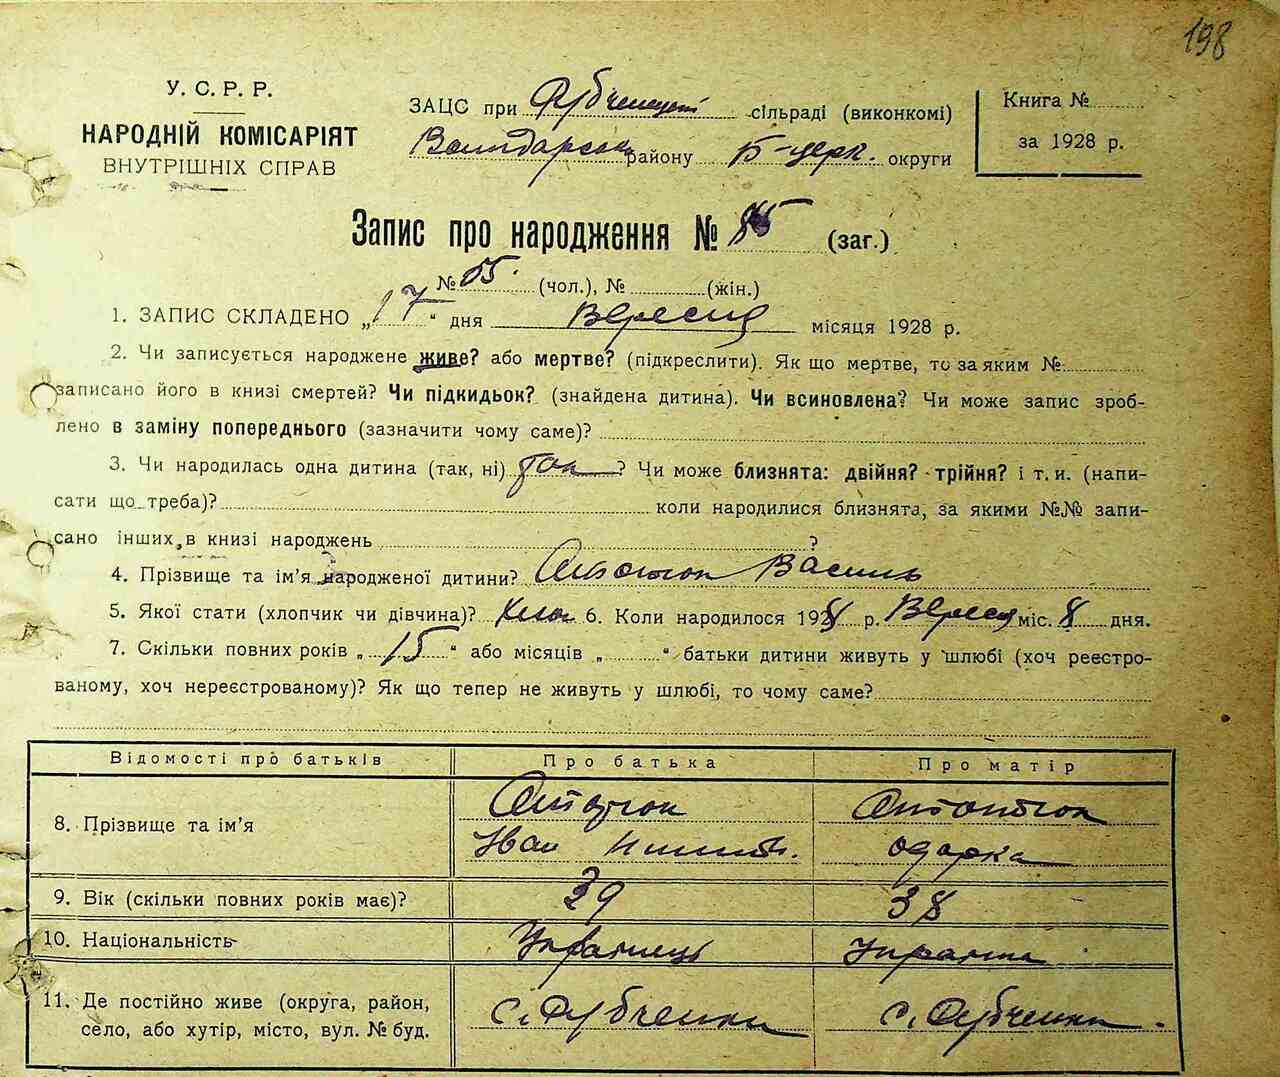 198
У. С. Р. Р.
НАРОДНІЙ КОМІСАРІЯТ
ВНУТРІШНІХ СПРАВ
ЗАЦС при сільраді (виконкомі)
району Б-церк. округи
Книга №
за 1928 р.
Запис про народження № (заг.)
№ 55. (чол.), № (жін.)
1. ЗАПИС СКЛАДЕНО „17“ дня Вересня місяця 1928 р.
2. Чи записується народжене живе? або мертве? (підкреслити). Як що мертве, то за яким №
записано його в книзі смертей? Чи підкидьок? (знайдена дитина). Чи всиновлена? Чи може запис зроб-
лено в заміну попереднього (зазначити чому саме)?
3. Чи народилась одна дитина (так, ні) так? Чи може близнята: двійня? трійня? і т. и. (напи-
сати що треба)? коли народилися близнята, за якими №№ запи-
сано інших в книзі народжень ?
4. Прізвище та ім’я народженої дитини? Василь
5. Якої стати (хлопчик чи дівчина)? 6. Коли народилося 1928 р. Вересня міс. 8 дня.
7. Скільки повних років „15“ або місяців „ “ батьки дитини живуть у шлюбі (хоч реєстро-
ваному, хоч нереєстрованому)? Як що тепер не живуть у шлюбі, то чому саме?
Відомості про батьків Про батька Про матір
8. Прізвище та ім’я Антонюк Антонюк
Іван Одарка
9. Вік (скільки повних років має)? 39 38
10. Національність Українець Українка
11. Де постійно живе (округа, район, с. Дубченки с. Дубченки.
село, або хутір, місто, вул. № буд.